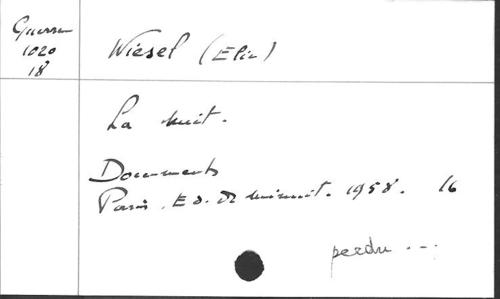 Guerre
1020
18
Wiesel (Elie)
La nuit.
Documents
Paris, Ed. de Minuit. 1958. 16
perdu ...